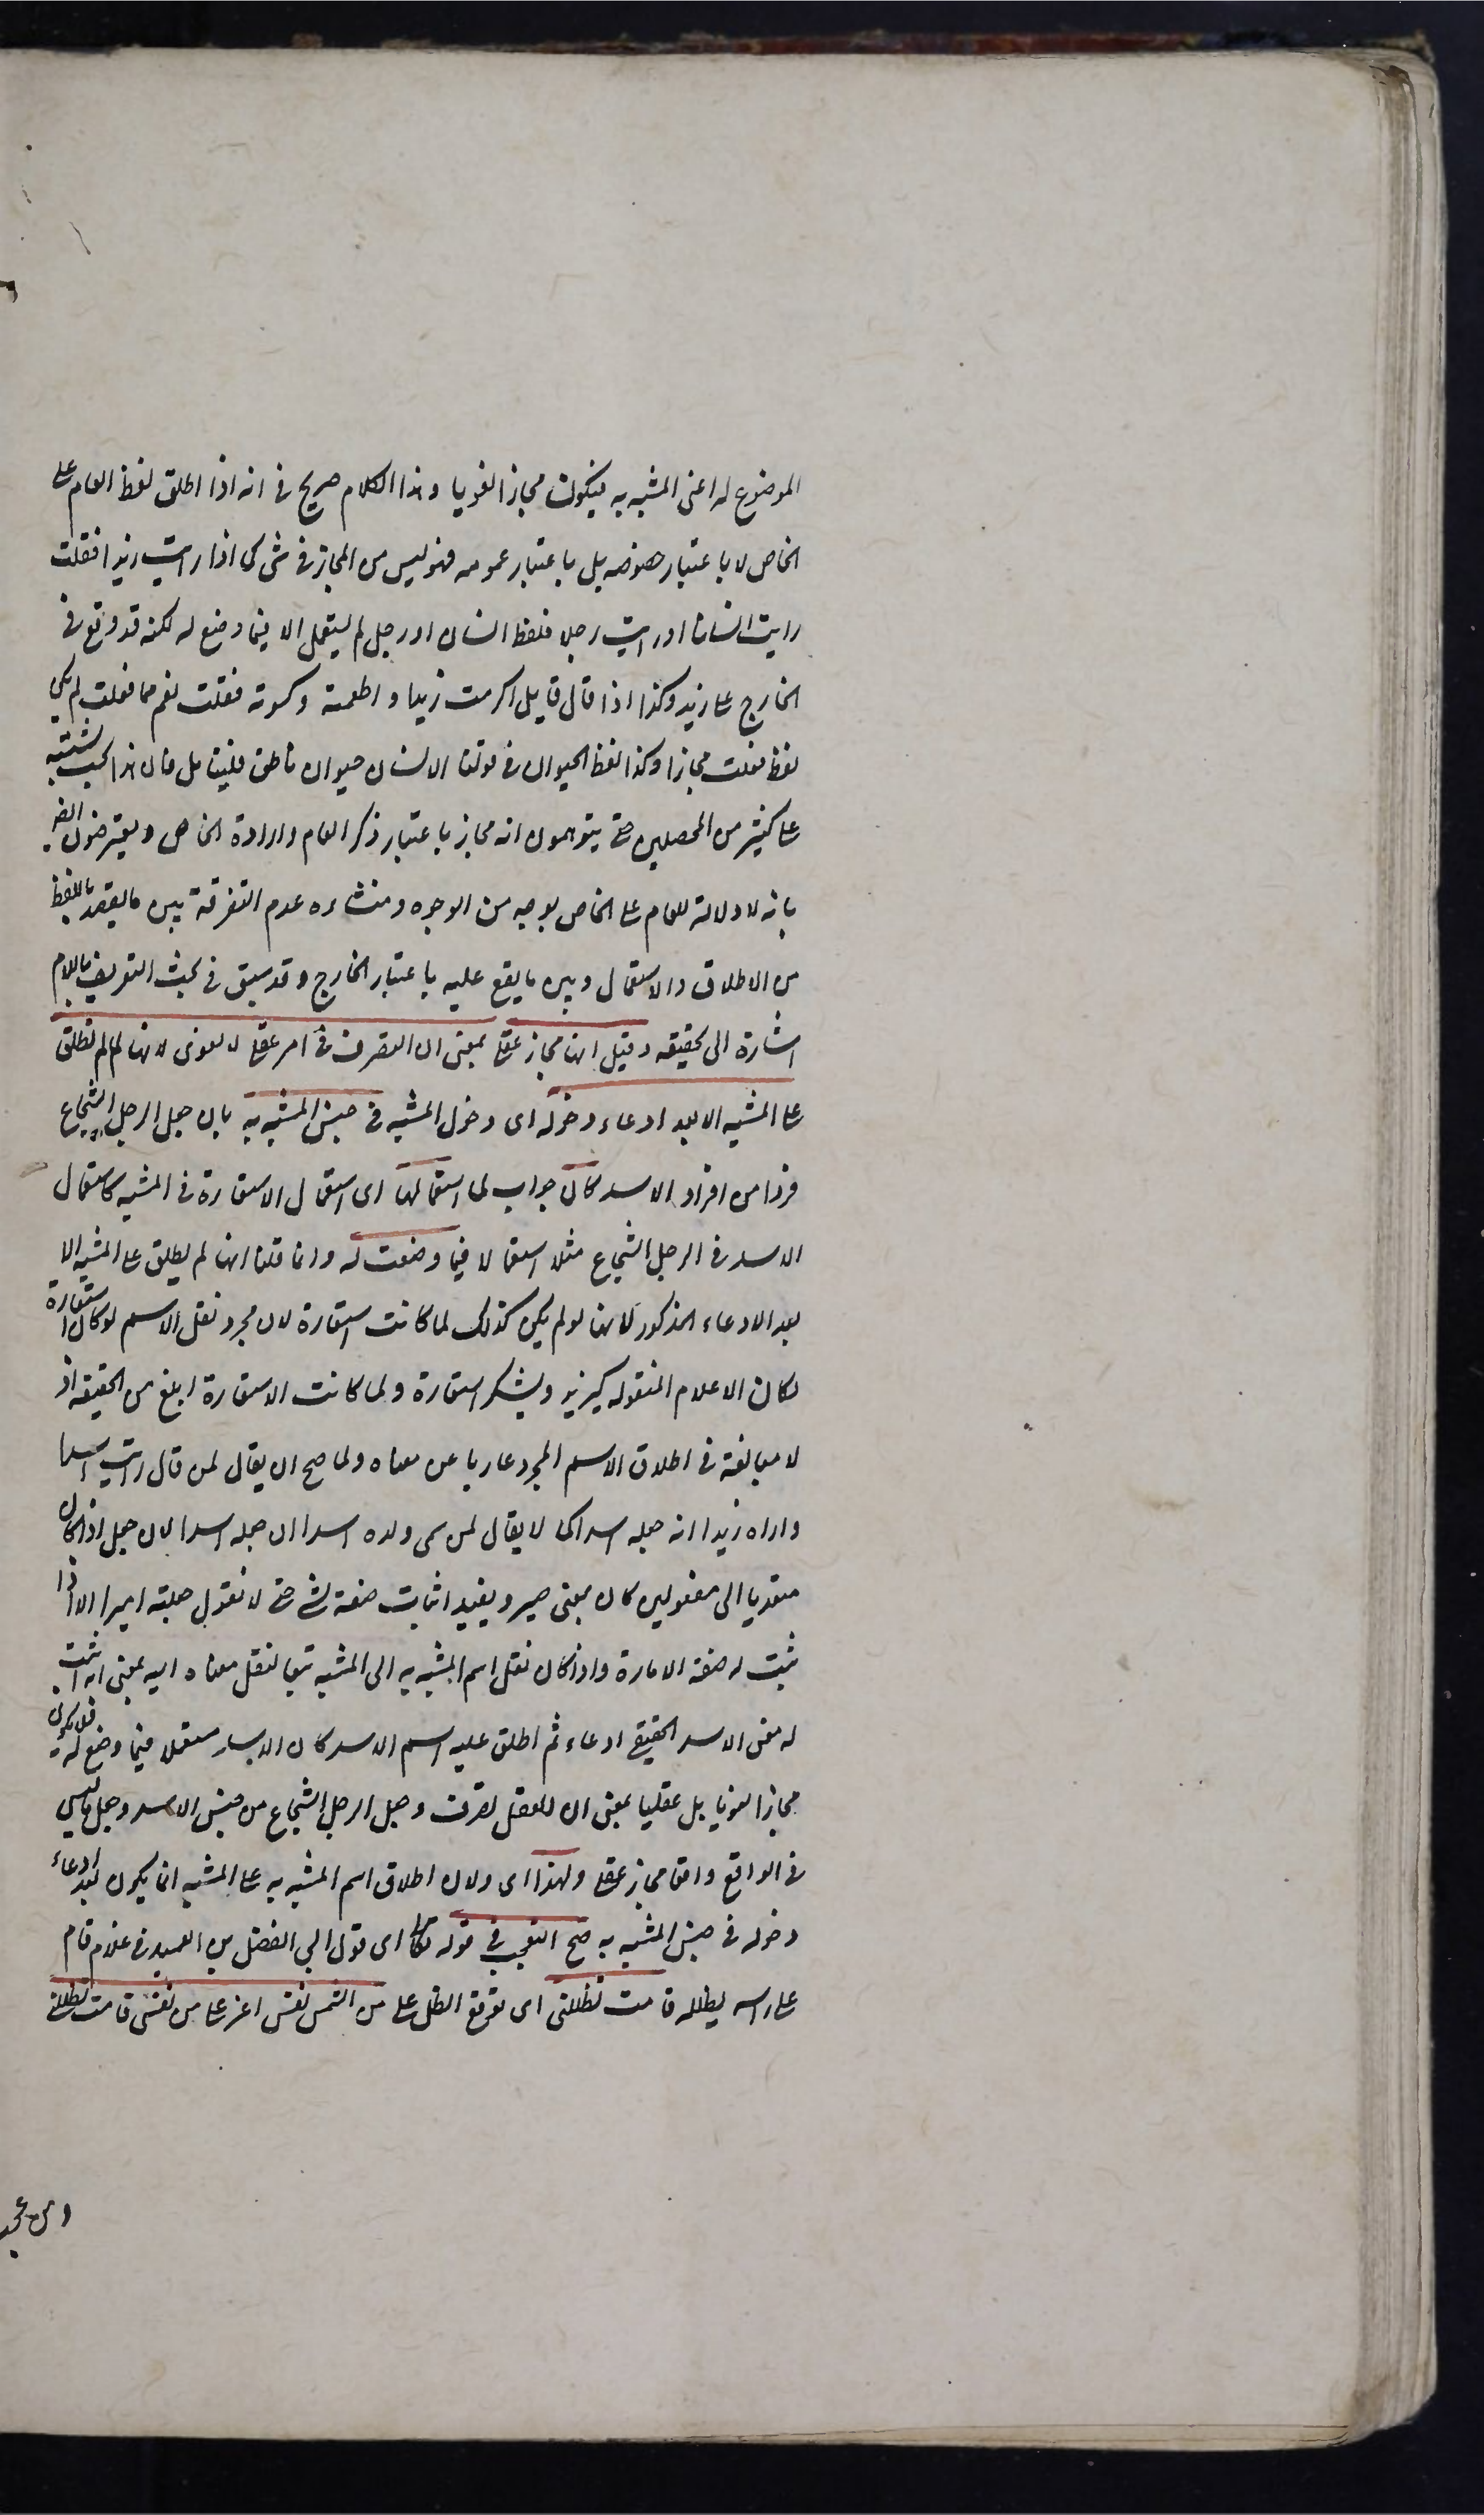 الموضوع له اعنى المشبه به فيكون مجازا لغويا وهذا الكلام صريح فى انه اذا اطلق لفظ العام على
الخاص لا باعتبار خصوصه بل باعتبار عمومه فهو ليس من المجاز فى شئ كما اذا رايت زيدا فقلت
رايت انسانا او رايت رجلا فلفظ انسان او رجل لم يستعمل الا فيما وضع له لكنه قد وقع فى
الخارج على زيد وكذا اذا قال قايل اكرمت زيدا واطعمته وكسوته فقلت نعم ما فعلت لم يكن
لفظ فعلت مجازا وكذا لفظ الحيوان فى قولنا الانسان حيوان ناطق فليتامل فان هذا بحث يشتبه
على كثير من المحصلين حتى يتوهمون انه مجاز باعتبار ذكر العام وارادة الخاص ويعترضون ايضا
بانه لا دلالة للعام على الخاص بوجه من الوجوه ومنشاءه عدم التفرقة بين ما يقصد باللفظ
من الاطلاق والاستعمال وبين ما يقع عليه باعتبار الخارج وقد سبق فى بحث التعريف باللام
اشارة الى تحقيقه وقيل انها مجاز عقلى بمعنى ان التصرف فى امر عقلى لا لغوى لانها لما لم تطلق
على المشبه الا بعد ادعاء دخوله اى دخول المشبه فى جنس المشبه به بان جعل الرجل الشجاع
فردا من افراد الاسد كان جواب لما استعمالها اى استعمال الاستعارة فى المشبه كاستعمال
الاسد فى الرجل الشجاع مثلا استعمالا فيما وضعت له وانما قلنا انها لم يطلق على المشبه الا
بعد الادعاء المذكور لانها لو لم يكن كذلك لما كانت استعارة لان مجرد نقل الاسم لو كان استعارة
لكان الاعلام المنقوله كيزيد ويشكر استعارة ولما كانت الاستعارة ابلغ من الحقيقه اذ
لا مبالغة فى اطلاق الاسم المجرد عاريا عن معناه ولما صح ان يقال لمن قال رايت اسدا
واراد زيدا انه جعله اسدا كما لا يقال لمن سمى ولده اسدا ان جعله اسدا لان جعل اذا كان
متعديا الى مفعولين كان بمعنى صير ويفيد اثبات صفة لشئ حتى لا تقول جعلته اميرا الا اذا
ثبت له صفة الامارة واذا كان نقل اسم المشبه به الى المشبه تبعا لنقل معناه اليه بمعنى انه اثبت
له معنى الاسد الحقيقى ادعاء ثم اطلق عليه اسم الاسد كان الاسد مستعملا فيما وضع له فلا يكون
مجازا لغويا بل عقليا بمعنى ان للعقل تصرف وجعل الرجل الشجاع من جنس الاسد وجعل ما ليس
فى الواقع واقعا مجاز عقلى ولهذا اى ولان اطلاق اسم المشبه به على المشبه انما يكون بعد ادعاء
دخوله فى جنس المشبه به صح التعجب فى قوله تعا اى قول ابى الفضل بن العميد فى غلام قام
على راسه يظلله قامت تظللنى اى توقع الظل على من الشمس نفس اعز على من نفسى قامت تظللنى
ومن عجب